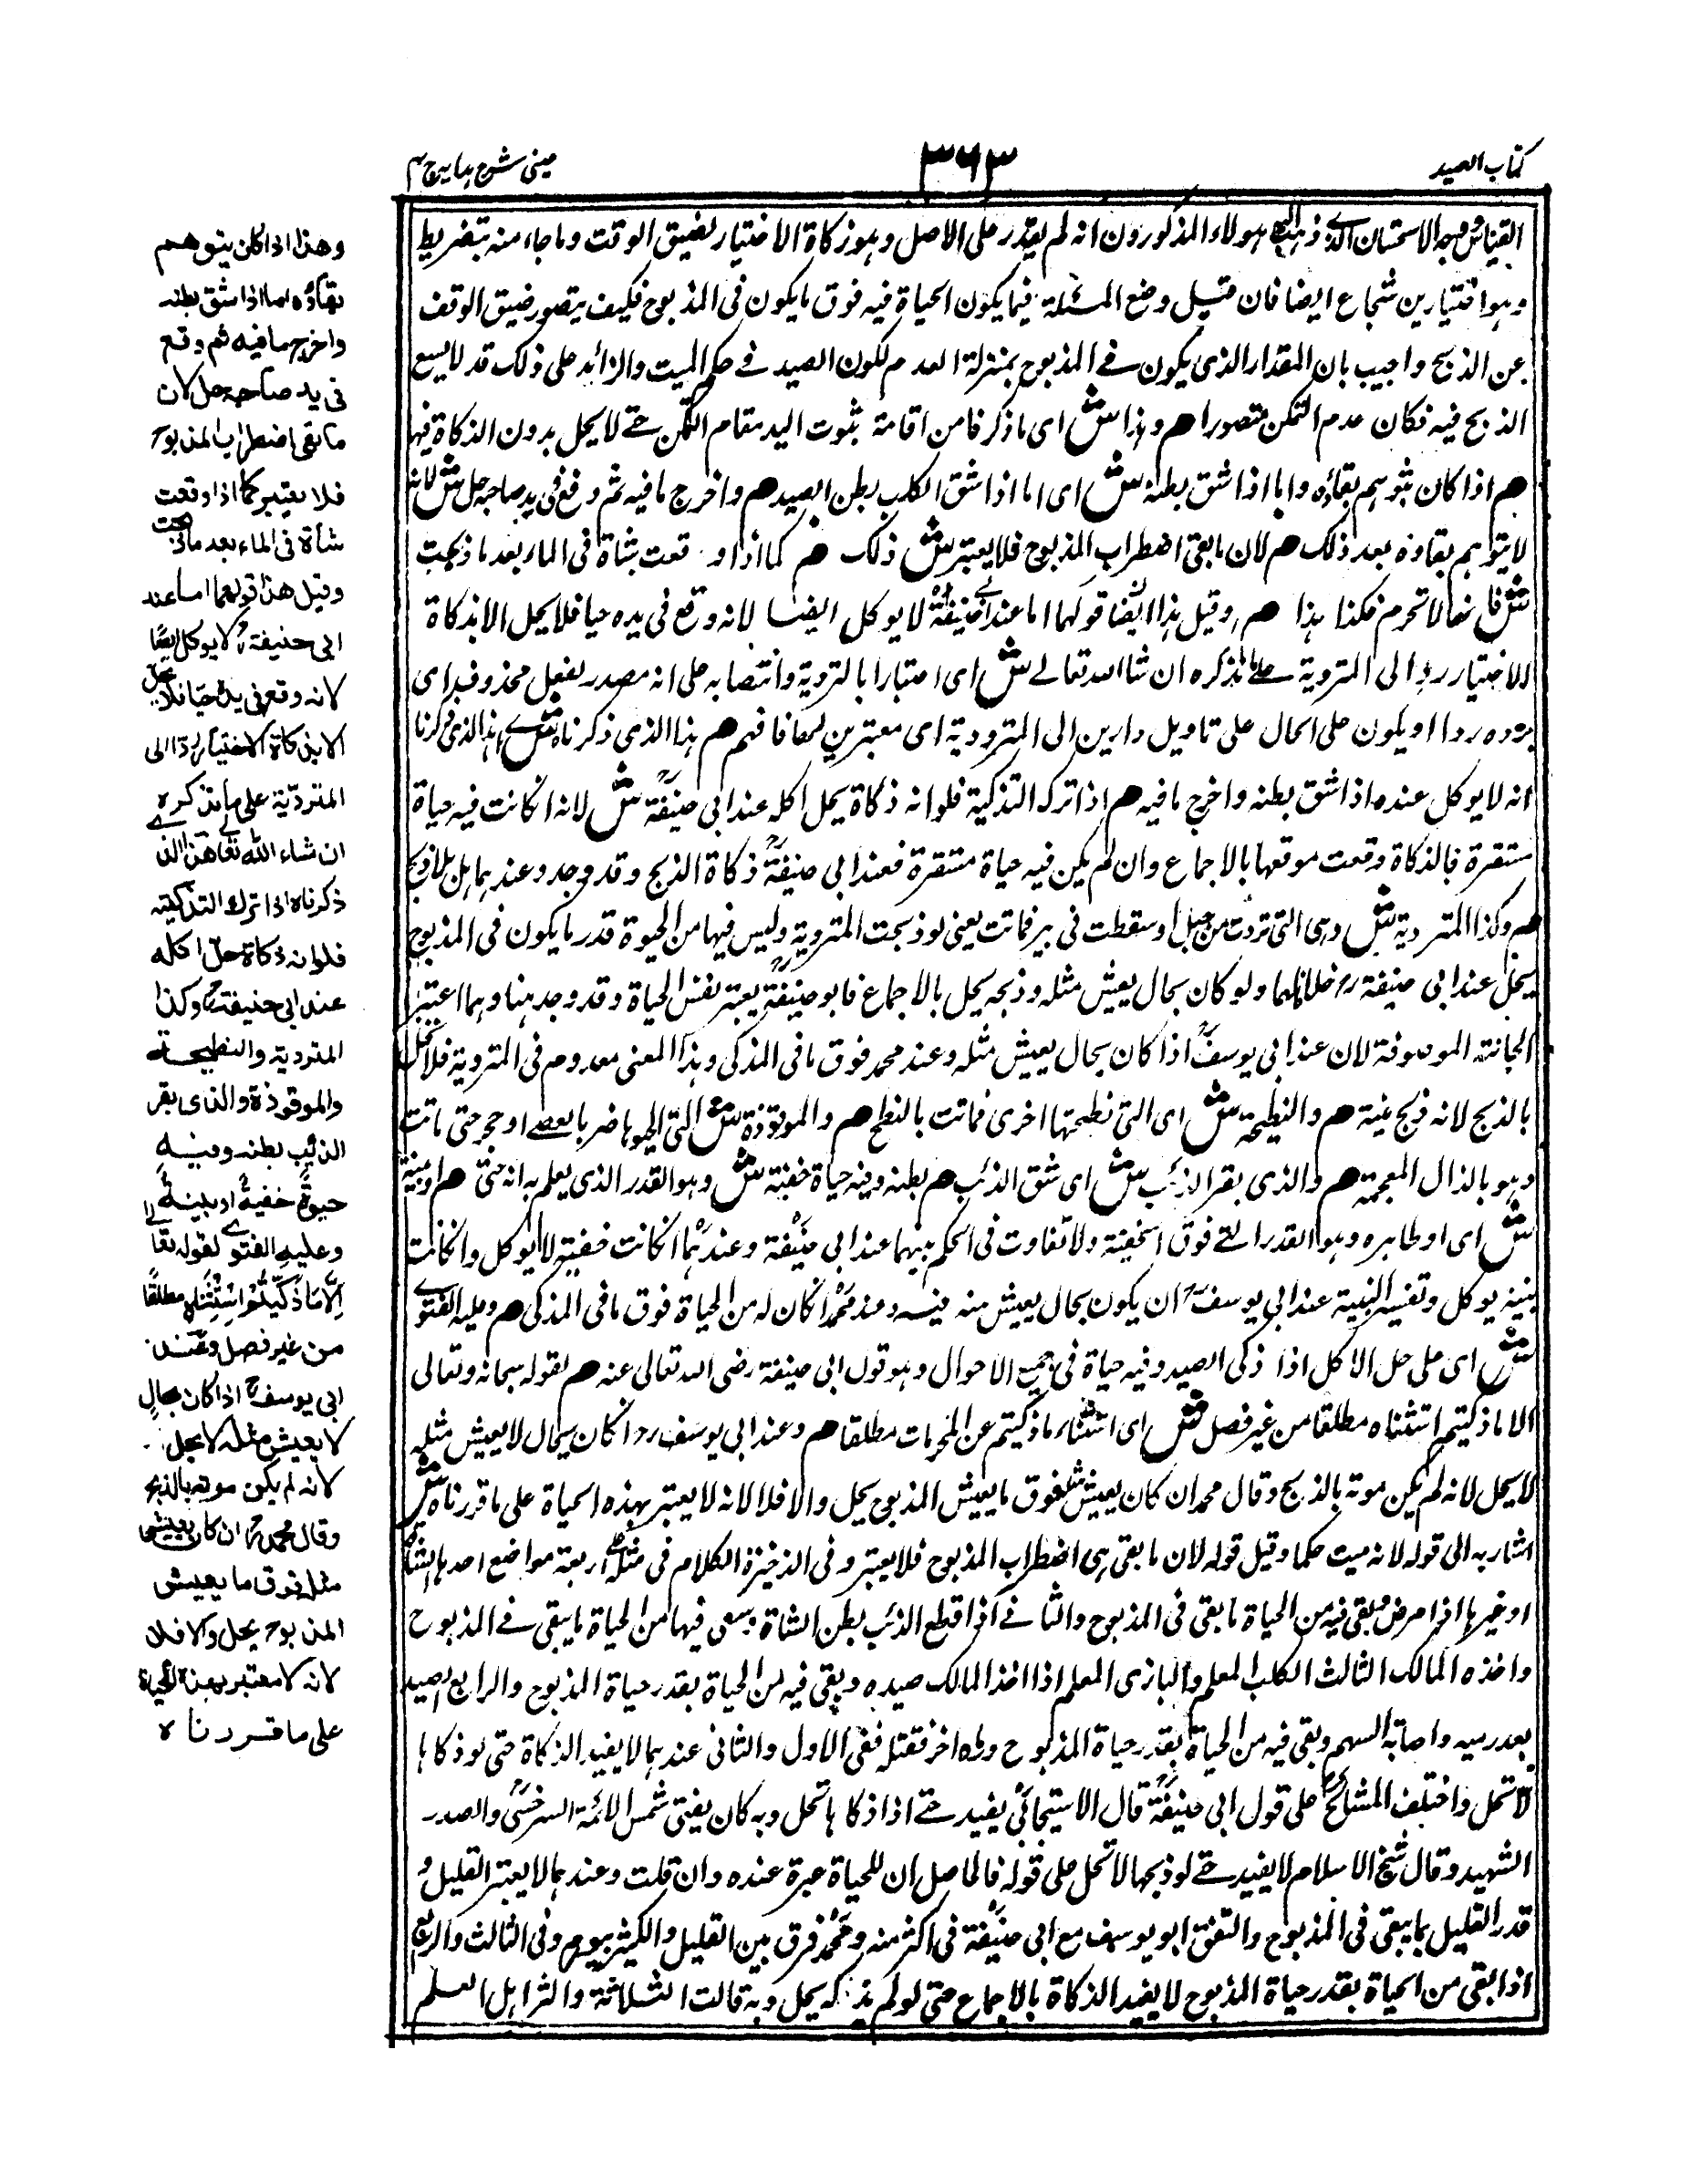 كتاب الصيد
٣٦٣
عينى شرح هدايه ج ٤
القياس وجه الاستحسان الذى ذهب اليه هولاء المذكورون انه لم يقدر على الاصل وهو زكاة الاختيار لضيق الوقت وما جاء منه بتفريط
وهو اختيار بن شجاع ايضا فان قيل وضع المسئلة فيما يكون الحياة فيه فوق ما يكون فى المذبوح فكيف يتصور ضيق الوقت
عن الذبح واجيب بان المقدار الذى يكون فى المذبوح بمنزلة العدم لكون الصيد فى حكم الميت والزائد على ذلك قد لا يسع
الذبح فيه فكان عدم التمكن متصورا هم وهذا ش اى ما ذكرنا من اقامة ثبوت اليد مقام التمكن حتى لا يحل بدون الذكاة فيها
هم اذا كان يتوهم بقاؤه واما اذا شق بطنه ش اى اما اذا شق الكلب بطن الصيد هم واخرج ما فيه ثم وقع فى يد صاحبه حل ش لانه
لا يتوهم بقاؤه بعد ذلك هم لان ما بقى اضطراب المذبوح فلا يعتبر ش ذلك هم كما اذا وقعت شاة فى الماء بعد ما ذبحت
ش فانها لا تحرم فكذا هذا هم وقيل هذا ايضا قولهما اما عند ابى حنيفة لا يوكل ايضا لانه وقع فى يده حيا فلا يحل الا بذكاة
الاختيار ردا الى المتردية على ما نذكره ان شاالله تعالى ش اى اعتبارا بالتردية وانتصابه على انه مصدر لفعل محذوف اى
يرده ردا او يكون على الحال على تاويل رادين الى المتردية اى معتبرين لها فافهم هم هذا الذى ذكرناه ش اى هذا الذى ذكرنا
انه لا يوكل عنده اذا شق بطنه واخرج ما فيه هم اذا ترك التذكية فلو انه ذكاة يحل اكله عند ابى حنيفة ش لانه ان كانت فيه حياة
مستقرة فالذكاة وقعت موقعها بالاجماع وان لم يكن فيه حياة مستقرة فعند ابى حنيفة ذكاة الذبح وقد وجد وعندهما هل بلا ذبح
هم وكذا المتردية ش وهى التى تردت من جبل او سقطت فى بير فماتت يعنى لو ذبحت المتردية وليس فيها من الحيوة قدر ما يكون فى المذبوح
يحل عند ابى حنيفة رح خلافا لهما ولو كان بحال يعيش مثله وذبحه يحل بالاجماع فابو حنيفة يعتبر نفس الحياة وقد وجد هنا وهما اعتبرا
الحياة الموصوفة لان عند ابى يوسف اذا كان بحال يعيش مثله وعند محمد فوق ما فى المذكى وهذا المعنى معدوم فى المتردية فلا تحل
بالذبح لانه ذبح ميتة هم والنطيحة ش اى التى نطحتها اخرى فماتت بالنطح هم والموقوذة ش التى الجموها ضربا بعصى او حجر حتى ماتت
وهو بالذال المعجمة هم والذى بقر الذئب ش اى شق الذئب هم بطنه وفيه حياة خفية ش وهو القدر الذى يعلم به انه حى هم او بينة
ش اى او ظاهره وهو القدر التى فوق الخفية ولا تفاوت فى الحكم بينهما عند ابى حنيفة وعندهما ان كانت خفية لا يوكل وان كانت
بينة يوكل وتفسير البينة عند ابى يوسف ان يكون بحال يعيش منه فيه وعند محمد ان كان له من الحياة فوق ما فى المذكى هم وعليه الفتوى
ش اى على حل الاكل اذا ذكى الصيد وفيه حياة فى جميع الاحوال وهو قول ابى حنيفة رضى الله تعالى عنه هم لقوله سبحانه وتعالى
الا ما ذكيتم استثناه مطلقا من غير فصل ش اى استثناء ما ذكيتم عن المحرمات مطلقا هم وعند ابى يوسف رح ان كان بحال لا يعيش مثله
لا يحل لانه لم يكن موته بالذبح وقال محمد ان كان يعيش مثله فوق ما يعيش المذبوح يحل والا فلا لانه لا يعتبر بهذه الحياة على ما قررناه ش
اشار به الى قوله لانه ميت حكما وقيل قوله لان ما بقى هى اضطراب المذبوح فلا يعتبر وفى الذخيرة الكلام فى مثله اربعة مواضع احدها الشاة
او غيرها اذا مرض وبقى فيه من الحياة ما بقى فى المذبوح والثانى اذا قطع الذئب بطن الشاة وبقى فيها من الحياة ما يبقى فى المذبوح
واخذه المالك الثالث الكلب المعلم والبازى المعلم اذا اخذ المالك صيده وبقى فيه من الحياة بقدر حياة المذبوح والرابع الصيد
بعد رميه واصابة السهم وبقى فيه من الحياة بقدر حياة المذبوح وله اخذ فقتله ففى الاول والثانى عندهما لا يفيد الذكاة حتى لو ذكاها
لا تحل واختلف المشائخ على قول ابى حنيفة قال الاسبيجابى يفيد حتى اذا ذكاها تحل وبه كان يفتى شمس الائمة السرخسى والصدر
الشهيد وقال شيخ الاسلام لا يفيد حتى لو ذبحها لا تحل على قوله فالحاصل ان للحياة عبرة عنده وان قلت وعندهما لا يعتبر القليل و
قدر القليل بما يبقى فى المذبوح واتفق ابو يوسف مع ابى حنيفة فى اكثر منه ومحمد فرق بين القليل والكثير بيوم وفى الثالث والرابع
اذا بقى من الحياة بقدر حياة المذبوح لا يفيد الذكاة بالاجماع حتى لو لم يذكه يحل وبه قالت الثلاثة واكثر اهل العلم
وهذا اذا كان يتوهم
بقاؤه اما اذا شق بطنه
واخرج ما فيه ثم وقع
فى يد صاحبه حل لان
ما بقى اضطراب المذبوح
فلا يعتبر كما اذا وقعت
شاة فى الماء بعد ما ذبحت
وقيل هذا قولهما اما عند
ابى حنيفة رح لا يوكل ايضا
لانه وقع فى يده حيّا فلا يحل
الا بذكاة الاختيار ردّا الى
المتردّية على ما نذكره
ان شاء الله تعالى هذا الذى
ذكرناه اذا ترك التذكية
فلو انه ذكاه حلّ اكله
عند ابى حنيفة رح وكذا
المتردية والنطيحة
والموقوذة والذى بقر
الذئب بطنه وفيه
حيوةٌ خفيةٌ او بينةٌ
وعليه الفتوى لقوله تعالى
اِلَّا مَا ذَكَّيْتُمْ اِسْتِثْنَاه مطلقًا
من غير فصل وعند
ابى يوسف رح اذا كان بحالٍ
لا يعيش مثله لا يحل
لانه لم يكن موته بالذبح
وقال محمد رح ان كان يعيش
مثله فوق ما يعيش
المذبوح يحل والا فلا
لانه لا معتبر بهذه الحياة
على ما قررناه